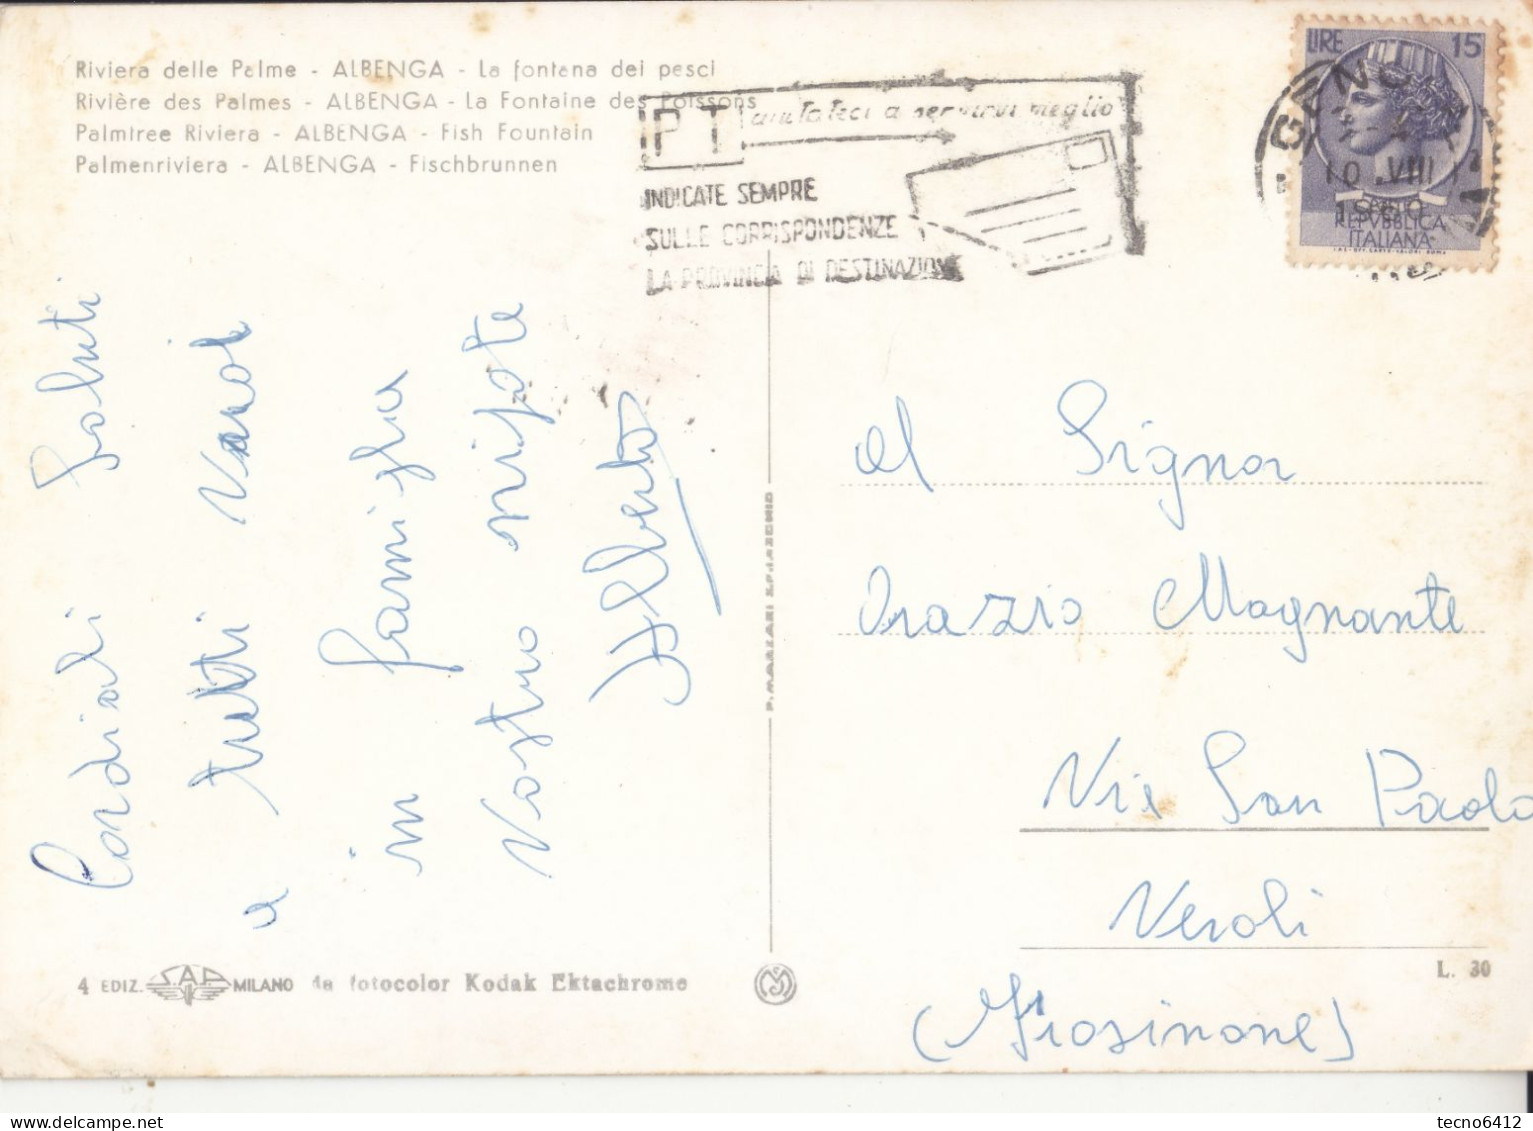 Riviera delle Palme - ALBENGA - La fontana dei pesci
Rivière des Palmes - ALBENGA - La Fontaine des Poissons
Palmtree Riviera - ALBENGA - Fish Fountain
Palmenriviera - ALBENGA - Fischbrunnen
PT aiutateci a servirvi meglio
INDICATE SEMPRE
SULLE CORRISPONDENZE
LA PROVINCIA DI DESTINAZIONE
LIRE 15
GENOVA
10 .VIII
REPVBBLICA
ITALIANA
Cordiali saluti
a tutti
in famiglia
Vostro nipote
Alberto
Al Signor
Orazio Magnante
Via San Paolo
Veroli
(Frosinone)
4 EDIZ. SAF MILANO da fotocolor Kodak Ektachrome
L. 30
tecno6412